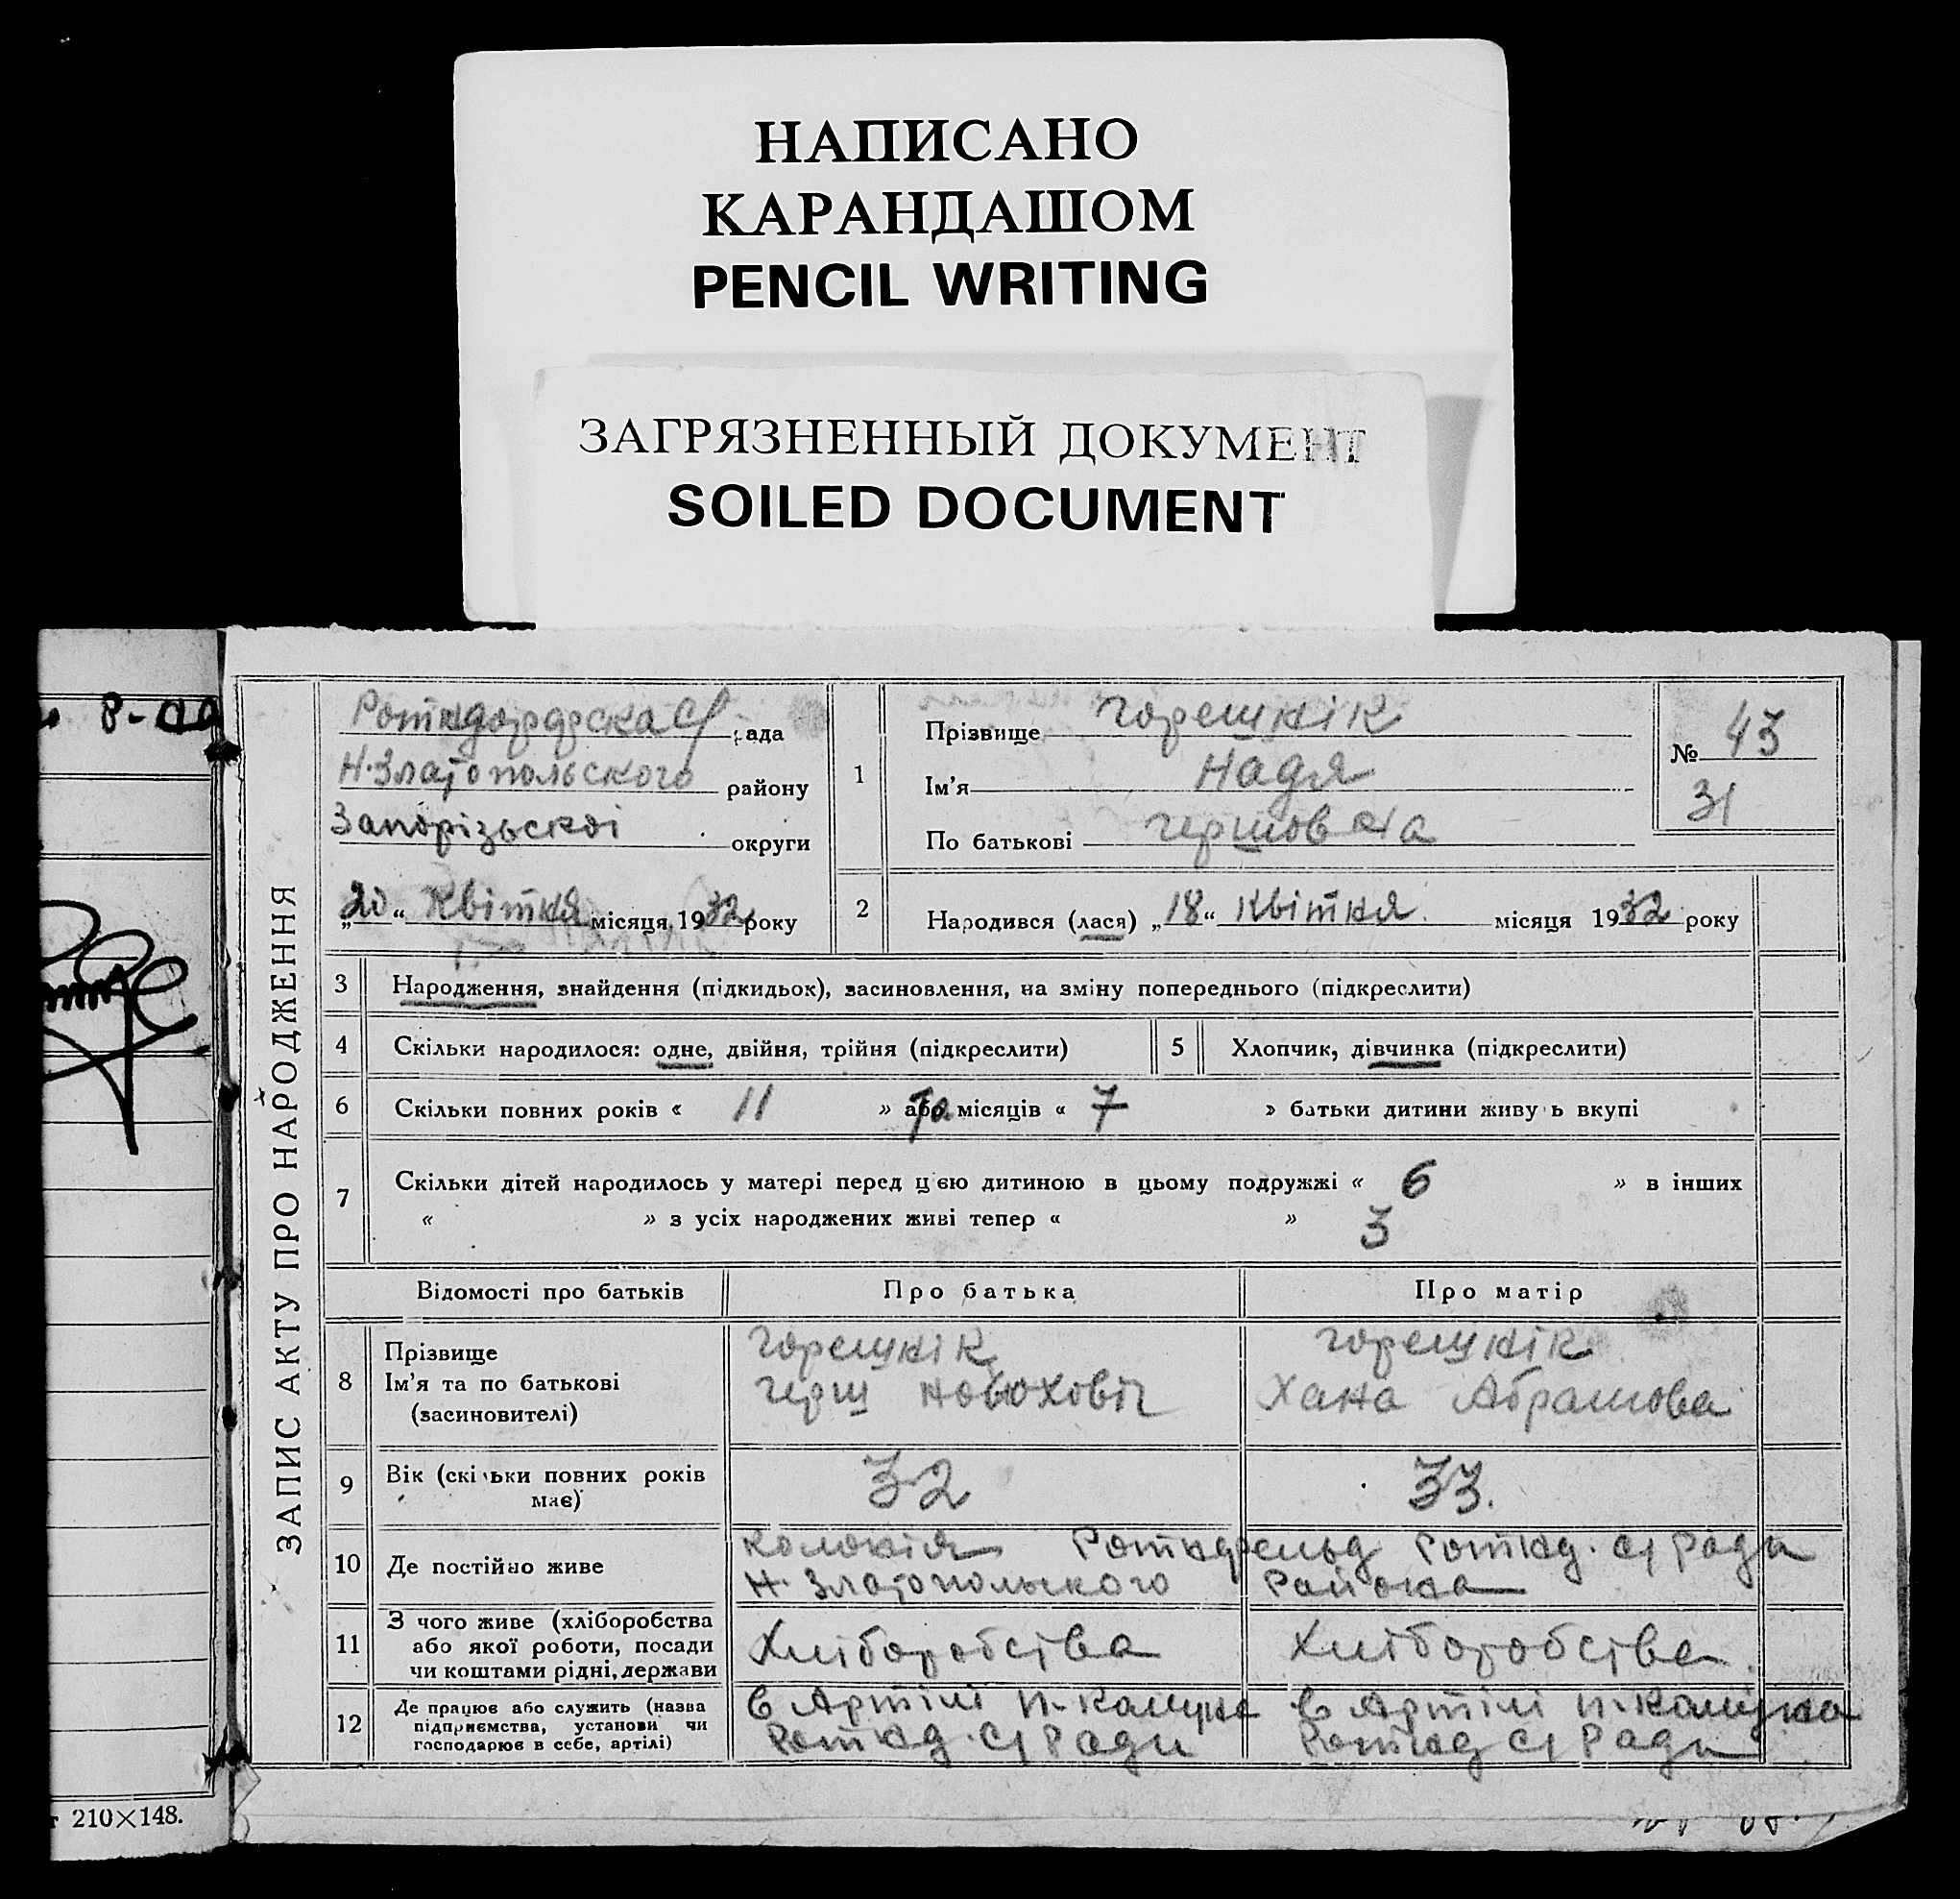 НАПИСАНО
КАРАНДАШОМ
PENCIL WRITING
ЗАГРЯЗНЕННЫЙ ДОКУМЕНТ
SOILED DOCUMENT
8-
210×148.
ЗАПИС АКТУ ПРО НАРОДЖЕННЯ
рада
Н.Златопольского району
Запорізьскоі округи
„20“ Квітня місяця 1932 року
1
Прізвище Горешнік
Ім'я Надя
По батькові Гершовна
№ 43
31
2
Народився (лася) „18“ Квітня місяця 1932 року
3 Народження, знайдення (підкидьок), засиновлення, на зміну попереднього (підкреслити)
4 Скільки народилося: одне, двійня, трійня (підкреслити)
5 Хлопчик, дівчинка (підкреслити)
6 Скільки повних років « 11 » або та місяців « 7 » батьки дитини живуть вкупі
7 Скільки дітей народилось у матері перед цією дитиною в цьому подружжі « 6 » в інших
« » з усіх народжених живі тепер « » 3
Відомості про батьків Про батька Про матір
8 Прізвище Горешнік Горешнік
Ім'я та по батькові Герш Хана Абрамова
(засиновителі)
9 Вік (скільки повних років має) 32 33.
10 Де постійно живе Колонія Ротндфельд Ротнд. с/ Ради
Н. Златопольского Района
11 З чого живе (хліборобства Хліборобства Хліборобства
або якої роботи, посади
чи коштами рідні, держави
12 Де працює або служить (назва в Артілі П-Комуна в Артілі П-Комуна
підприємства, установи чи Ротнд. с/ Ради Ротнд с/ Ради
господарює в себе, артілі)